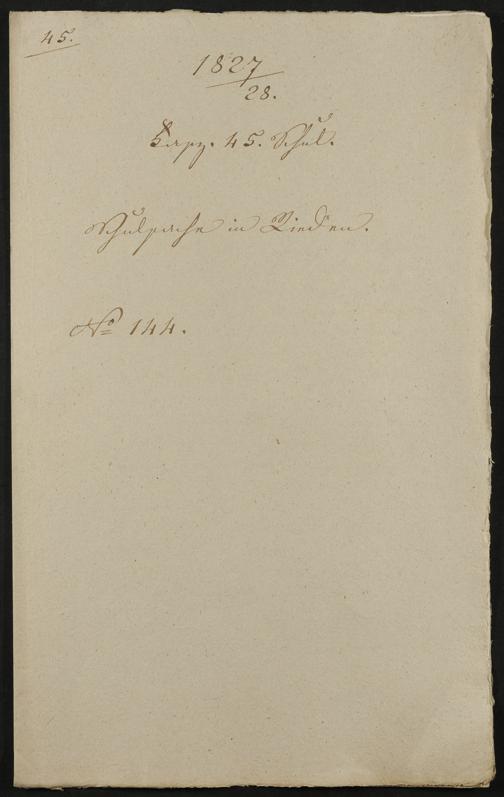 45.
1827
28.
Kapz. 45. Schul.
Schulsache in Rieden.
No 144.